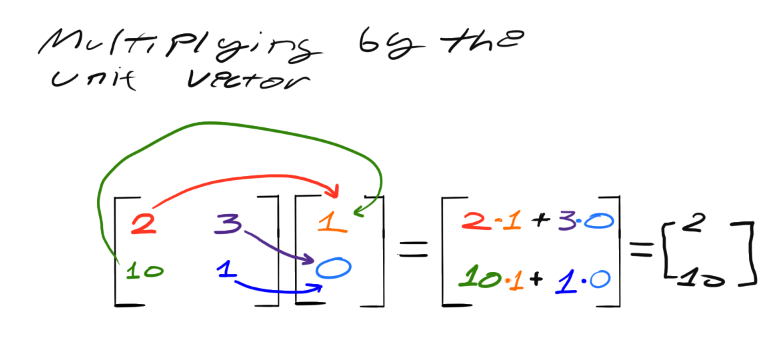 Multiplying by the
unit vector
2 3 1 = 2·1 + 3·0 = 2
10 1 0 10·1 + 1·0 10